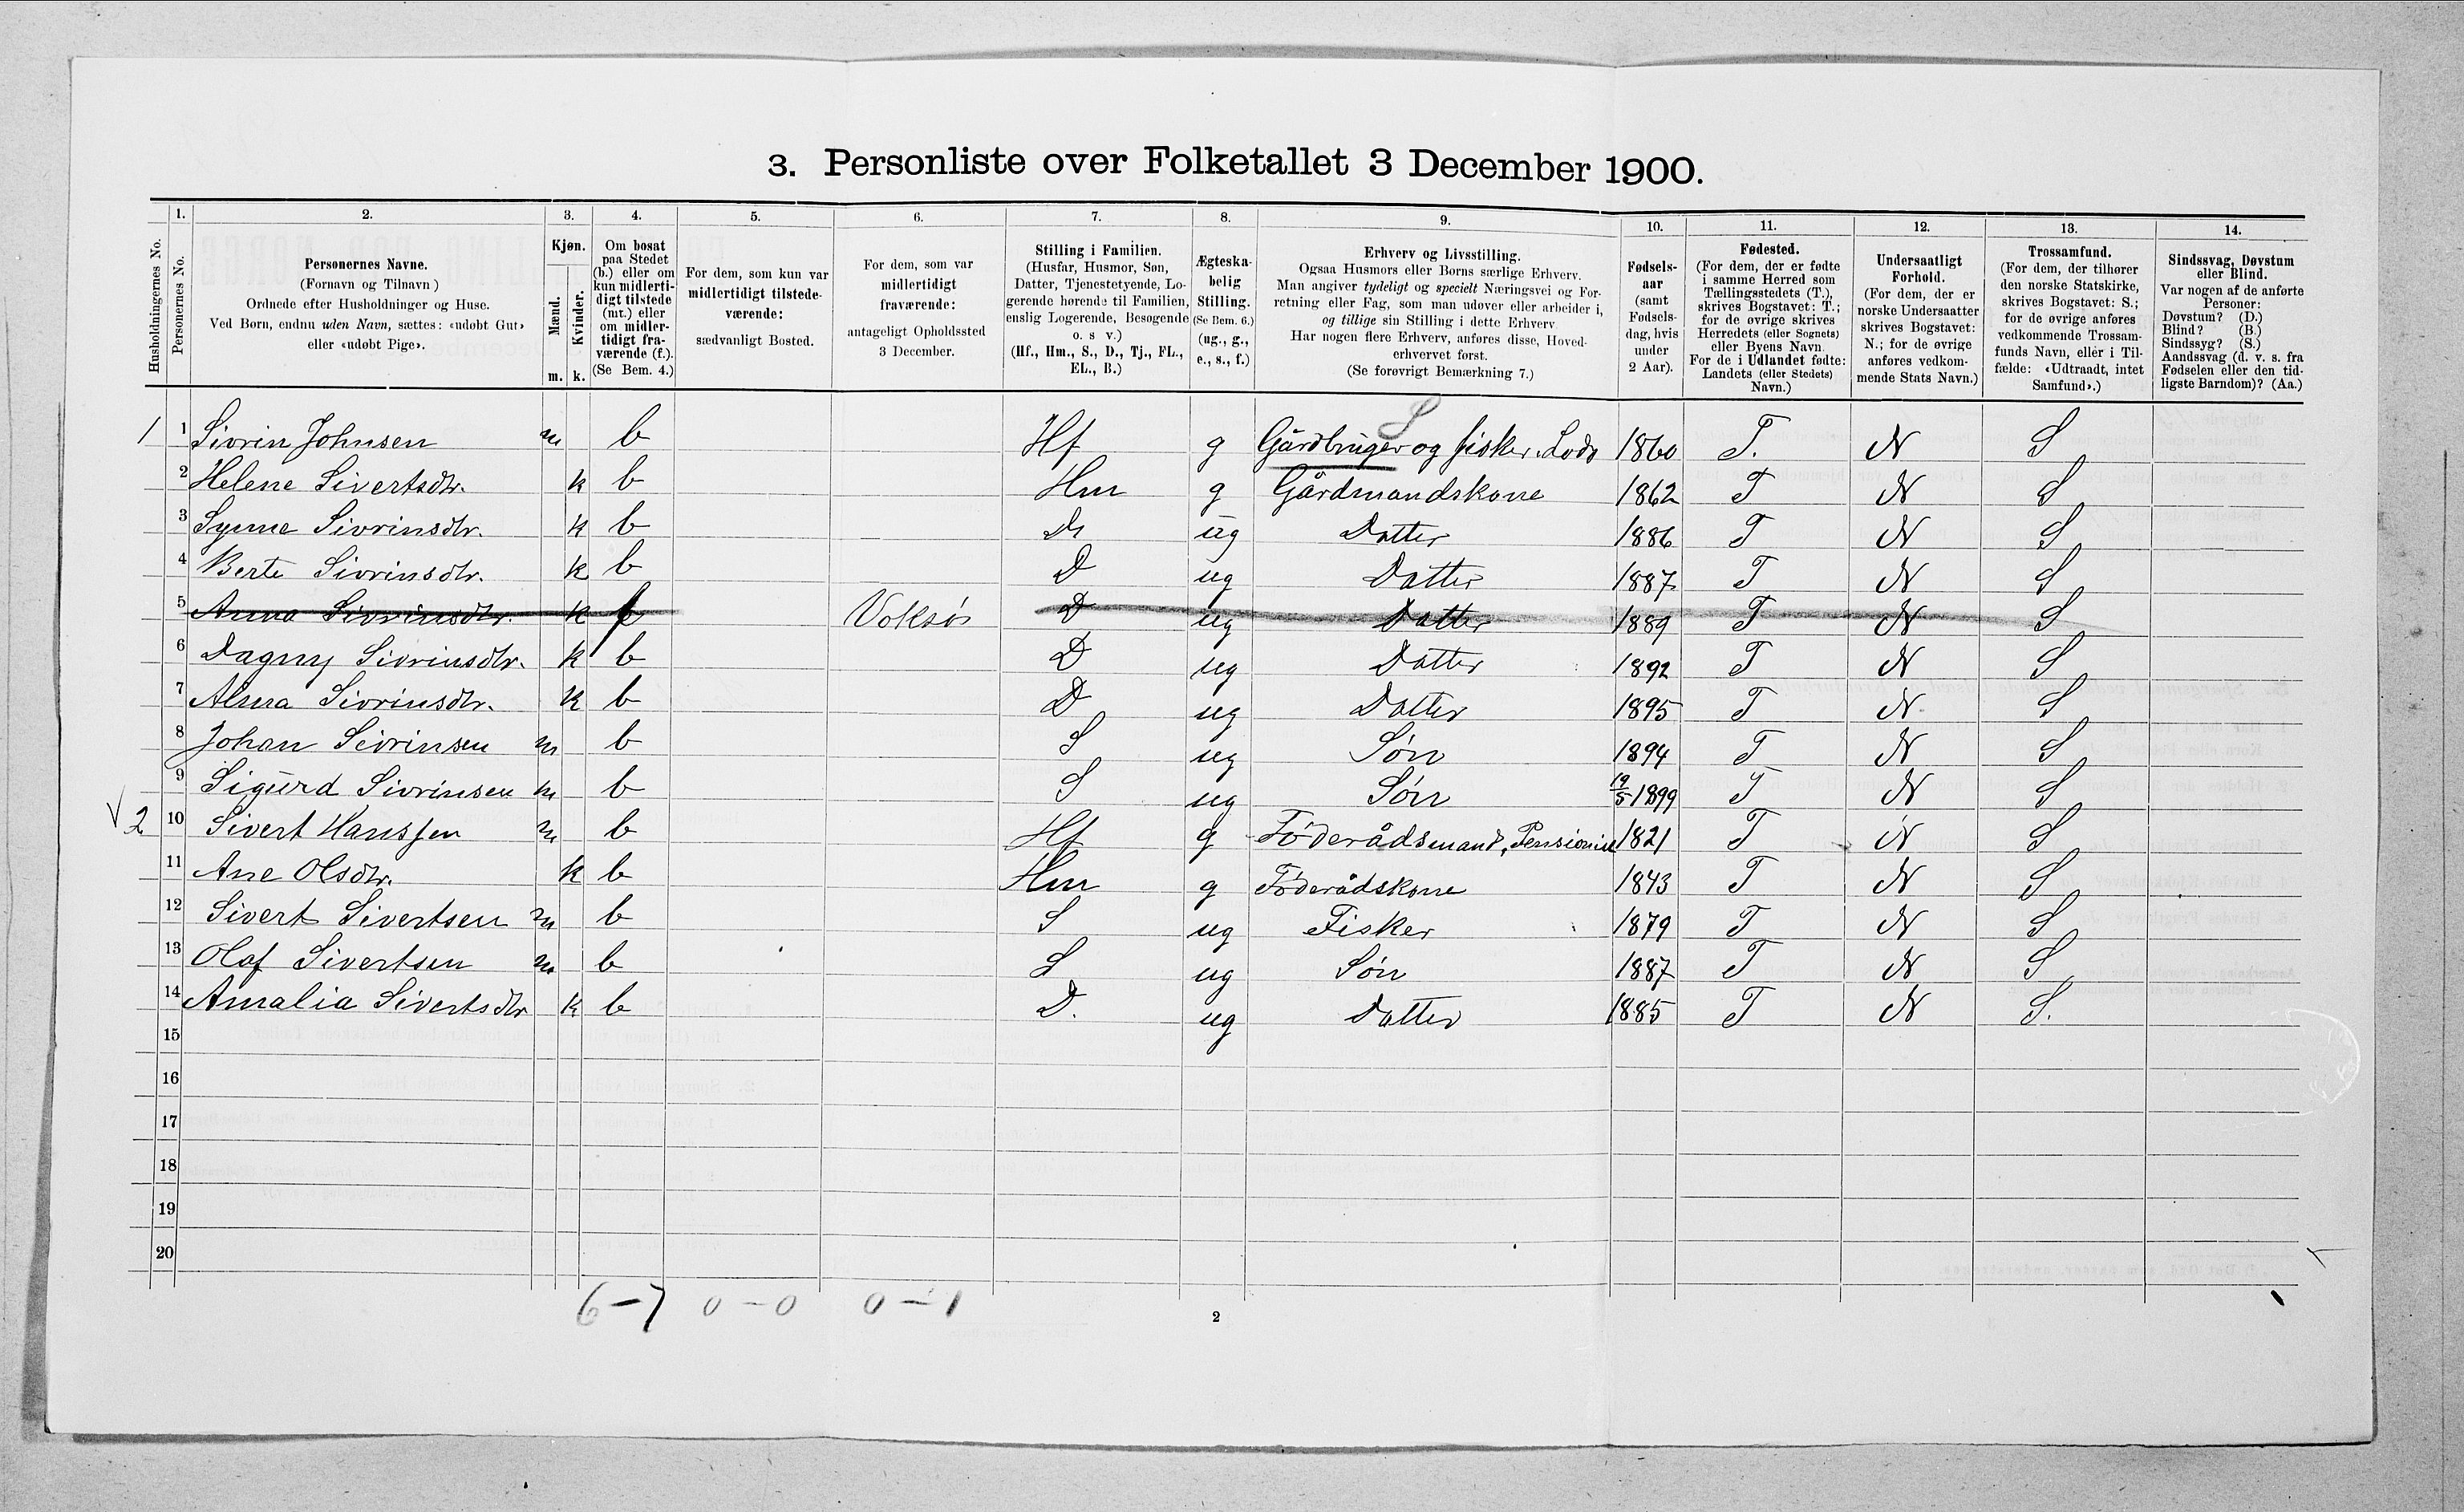 3. Personliste over Folketallet 3 December 1900.
Husholdningernes No.
1. Personernes No.
2. Personernes Navne. (Fornavn og Tilnavn) Ordnede efter Husholdninger og Huse. Ved Børn, endnu uden Navn, sættes: «udøbt Gut» eller «udøbt Pige».
3. Kjøn. Mænd. m. Kvinder. k.
4. Om bosat paa Stedet (b.) eller om kun midlertidigt tilstede (mt.) eller om midlertidigt fraværende (f.). (Se Bem. 4.)
5. For dem, som kun var midlertidigt tilstedeværende: sædvanligt Bosted.
6. For dem, som var midlertidigt fraværende: antageligt Opholdssted 3 December.
7. Stilling i Familien. (Husfar, Husmor, Søn, Datter, Tjenestetyende, Logerende hørende til Familien, enslig Logerende, Besøgende o. s v.) (Hf., Hm., S., D., Tj., FL., EL., B.)
8. Ægteskabelig Stilling. (Se Bem. 6.) (ug., g., e., s., f.)
9. Erhverv og Livsstilling. Ogsaa Husmors eller Børns særlige Erhverv. Man angiver tydeligt og specielt Næringsvei og Forretning eller Fag, som man udøver eller arbeider i, og tillige sin Stilling i dette Erhverv. Har nogen flere Erhverv, anføres disse, Hovederhvervet først. (Se forøvrigt Bemærkning 7.)
10. Fødselsaar (samt Fødselsdag, hvis under 2 Aar).
11. Fødested. (For dem, der er fødte i samme Herred som Tællingsstedets (T.), skrives Bogstavet: T.; for de øvrige skrives Herredets (eller Sognets) eller Byens Navn. For de i Udlandet fødte: Landets (eller Stedets) Navn.)
12. Undersaatligt Forhold. (For dem, der er norske Undersaatter skrives Bogstavet: N.; for de øvrige anføres vedkommende Stats Navn.)
13. Trossamfund. (For dem, der tilhører den norske Statskirke, skrives Bogstavet: S.; for de øvrige anføres vedkommende Trossamfunds Navn, eller i Tilfælde: «Udtraadt, intet Samfund».)
14. Sindssvag, Døvstum eller Blind. Var nogen af de anførte Personer: Døvstum? (D.) Blind? (B.) Sindssyg? (S.) Aandssvag (d. v. s. fra Fødselen eller den tidligste Barndom)? (Aa.)
S
1 1 Sivrin Johnsen m b Hf g Gårdbruger og fisker. Lods 1860 T. N S
2 Helene Sivertsdtr. k b Hm g Gårdmandskone 1862 T N S
3 Synne Sivrinsdtr. k b D ug Datter 1886 T N S
4 Berte Sivrinsdtr. k b D ug Datter 1887 T N S
5 Anna Sivrinsdtr. k Voksø D ug Datter 1889 T N S
6 Dagny Sivrinsdtr. k b D ug Datter 1892 T N S
7 Alma Sivrinsdtr. k b D ug Datter 1895 T N S
8 Johan Sivrinsen m b S ug Søn 1894 T N S
9 Sigurd Sivrinsen m b S ug Søn 19/5 1899 T N S
2 10 Sivert Hanssen m b Hf g Føderådsmand, Pensionist 1821 T N S
11 Ane Olsdtr. k b Hm g Føderådskone 1843 T N S
12 Sivert Sivertsen m b S ug Fisker 1879 T N S
13 Olaf Sivertsen m b S ug Søn 1887 T N S
14 Amalia Sivertsdtr k b D. ug Datter 1885 T N S.
15
16
17
18
19
20
6 – 7 0 – 0 0 – 1
2